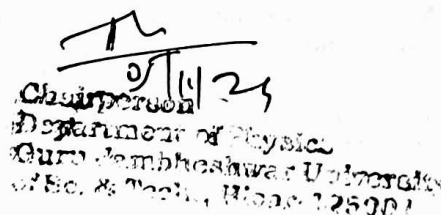 05/11/25
Chairperson
Department of Physics
Guru Jambheshwar University
of Sc. & Tech., Hisar-125001